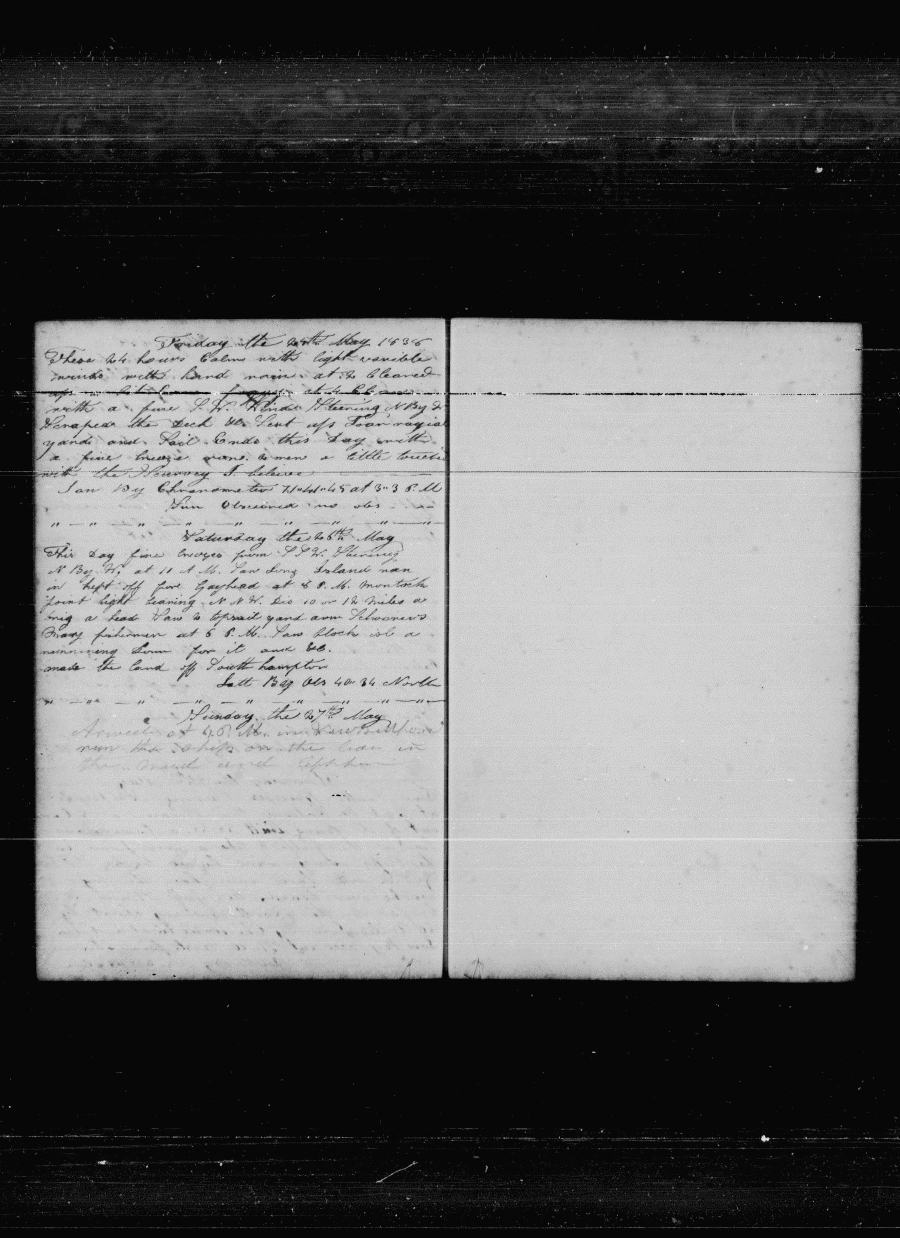 Friday the 25th May 1838
These 24 hours Calm with light varible
winds with hard rain at 2 Cleared
at 4
with a fine S. W. Winds Steering N By E
Scraped the Deck &c. Sent up
yards and Sail Ends this Day with
a fine breeze a little
with the Scurvey I believe
Lon By Chronometer at 3"3 P. M
Sun Obscured no obs
" — " — " — " — " — " — "
Saturday the 26th May
This Day fine breezes from S S W. Steering
N By W, at 11 A M. Saw Long Island ran
in kept off for Gayhead at 8 P. M. montock
point light bearing N N W. Dis 10 or 12 Miles a
brig a head Saw 2 yard arm Schooners
Many fishermen at 5 P. M. Saw block isl a
running Down for it and &c.
made the land off South hampton
Latt By Obs 40 34 North
" — " — " — " — " — " — "
Sunday the 27th May
Arived at P. M. in
run the Ship on the bar in
the mud and left her